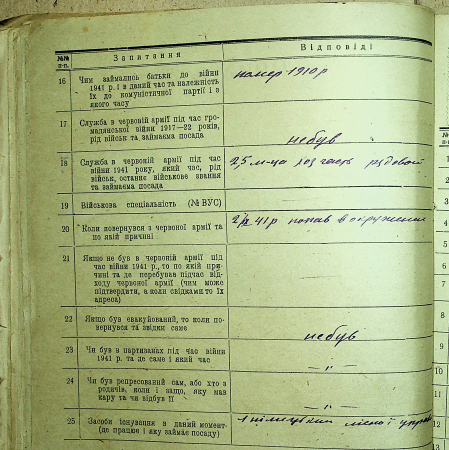 №№
п-п.
Запитання
Відповіді
16 Чим займались батьки до війни
1941 р. і в даний час та належність
їх до комуністичної партії і з
якого часу
помер 1910 р
17 Служба в червоній армії під час гро-
мадянської війни 1917—22 років,
рід військ та займаєма посада
небув
18 Служба в червоній армії під час
війни 1941 року, який час, рід
військ, останнє військове звання
та займаєма посада
2,5 м-ца рядовой
19 Військова спеціальність (№ ВУС)
20 Коли повернувся з червоної армії та
по якій причині
41 р попав в окружение
21 Якщо не був в червоній армії під
час війни 1941 р., то по якій при-
чині та де перебував підчас від-
ходу червоної армії (чим може
підтвердити, а коли свідками то їх
адреса)
22 Якщо був евакуйований, то коли по-
вернувся та звідки саме
небув
23 Чи був в партизанах під час війни
1941 р. та де саме і який час
— „ —
24 Чи був репресований сам, або хто з
родичів, коли і защо, яку мав
кару та чи відбув її
— „ —
25 Засоби існування в даний момент
(де працює і яку займає посаду)